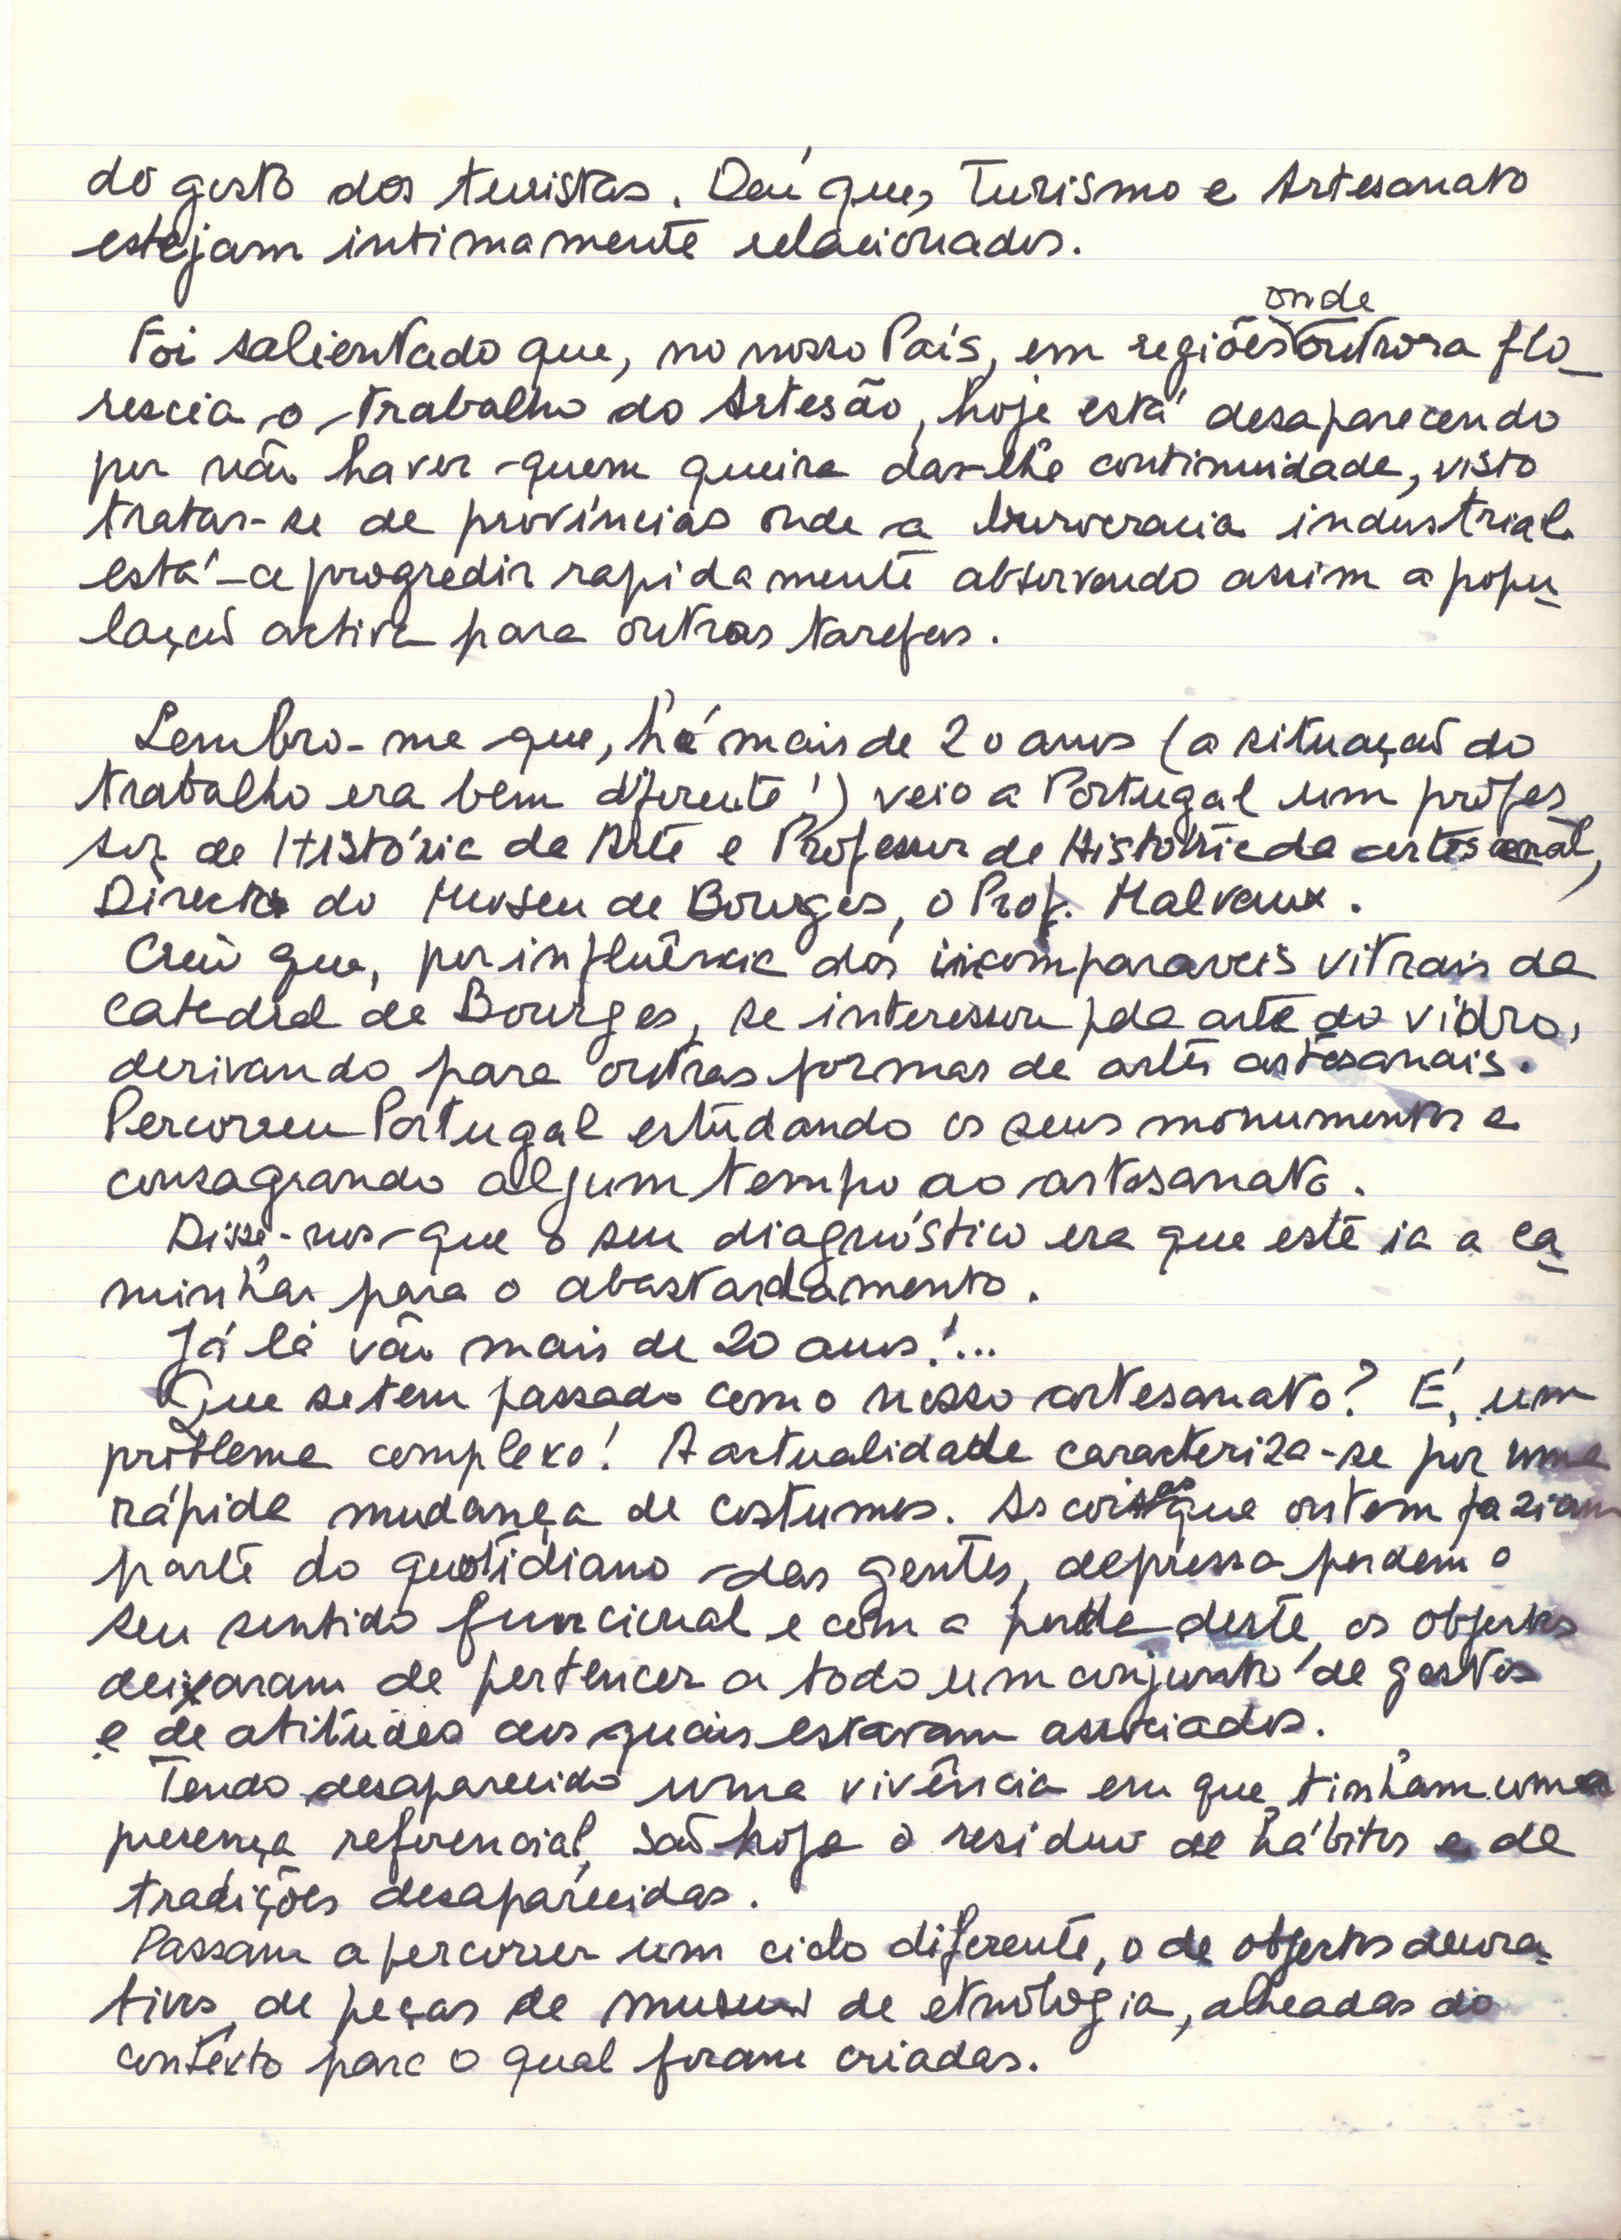 do gosto dos turistas. Daí que, Turismo e Artesanato
estejam intimamente relacionados.
Foi salientado que, no nosso País, em regiões onde outrora flo-
rescia o trabalho do Artesão, hoje está desaparecendo
por não haver quem queira dar-lhe continuidade, visto
tratar-se de províncias onde a burocracia industrial
está a progredir rapidamente absorvendo assim a popu-
lação activa para outras tarefas.
Lembro-me que, há mais de 20 anos (a situação do
trabalho era bem diferente!) veio a Portugal um profes
sor de História da Arte e Professor de História da artesanal,
Director do Museu de Bourges, o Prof. Malvaux.
Creio que, por influência dos incomparaveis vitrais da
catedral de Bourges, se interessou pela arte do vidro,
derivando para outras formas de artes artesanais.
Percorreu Portugal estudando os seus monumentos e
consagrando algum tempo ao artesanato.
Disse-nos que o seu diagnóstico era que este ia a ca-
minhar para o abastardamento.
Já lá vão mais de 20 anos!...
Que se tem passado com o nosso artesanato? É, um
problema complexo! A actualidade caracteriza-se por uma
rápida mudança de costumes. As coisas que ontem faziam
parte do quotidiano das gentes, depressa perdem o
seu sentido funcional e com a perda deste, os objectos
deixaram de pertencer a todo um conjunto de gestos
e de atitudes aos quais estavam associados.
Tendo desaparecido uma vivência em que tinham uma
presença referencial, são hoje o residuo de hábitos e de
tradições desaparecidas.
Passam a percorrer um ciclo diferente, o de objectos decora-
tivos, de peças de museus de etnologia, alheadas do
contexto para o qual foram criadas.